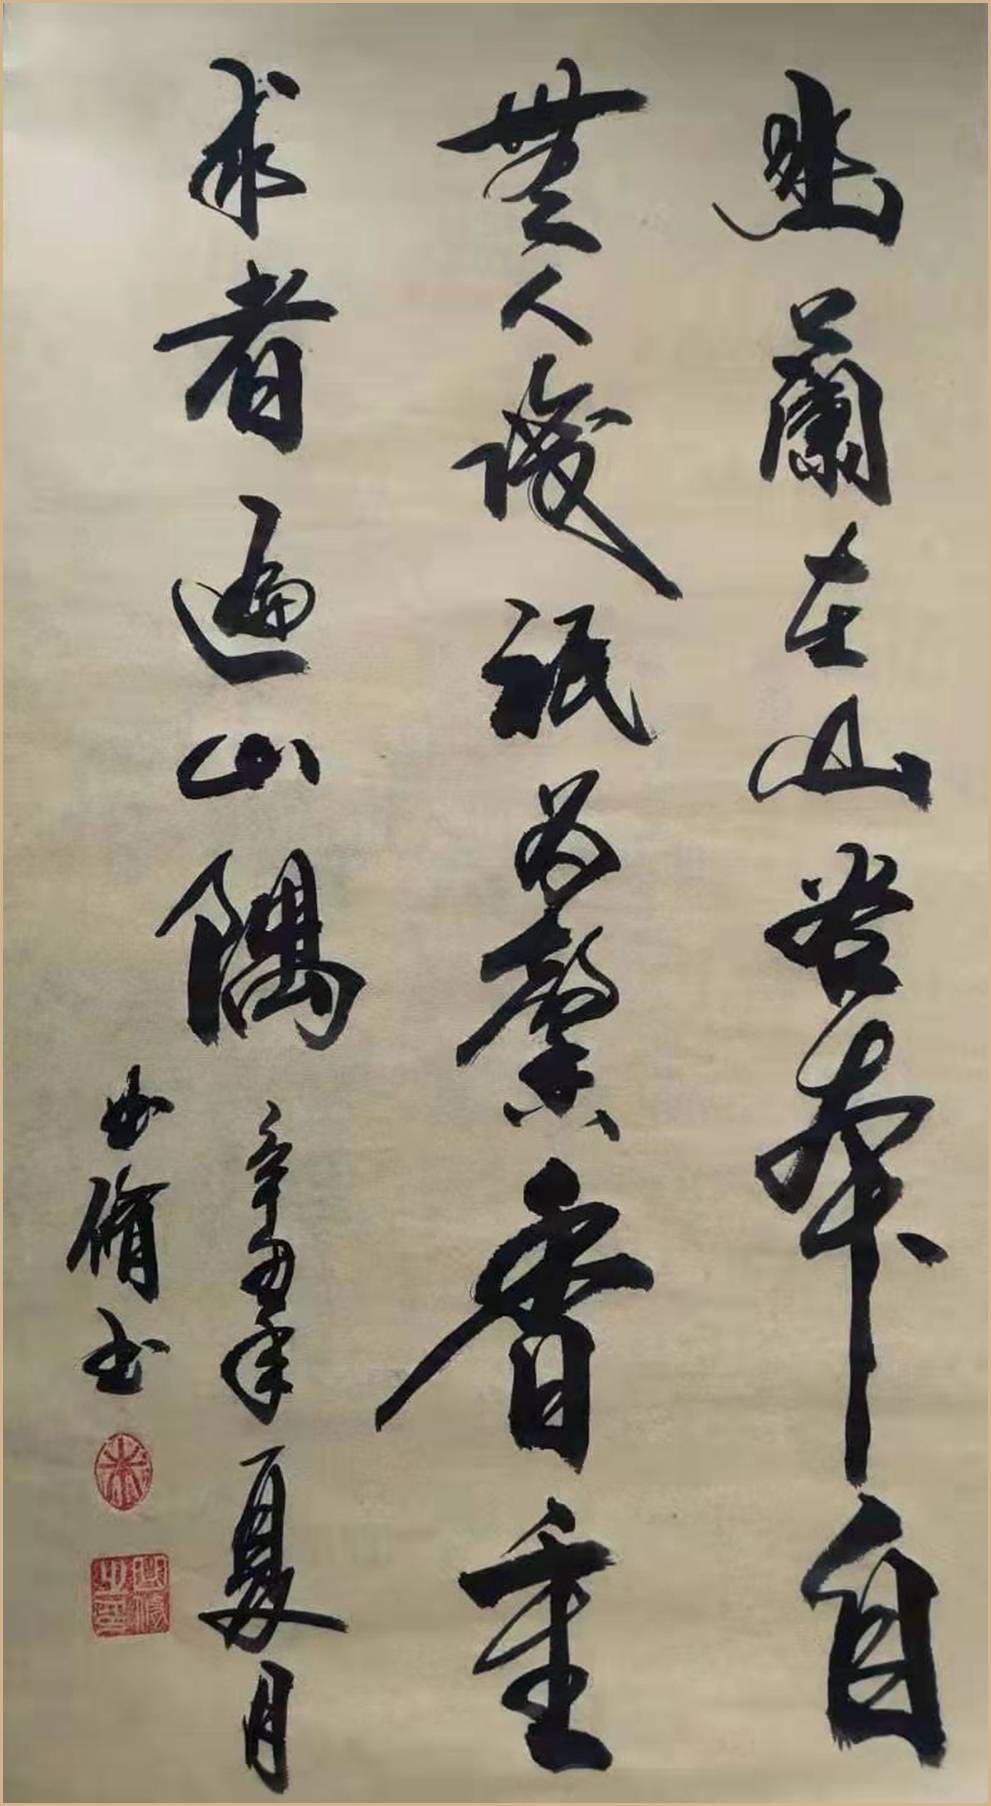 幽蘭在山谷本自
無人識祇為馨香重
求者遍山隅
辛丑年夏月
書
朱